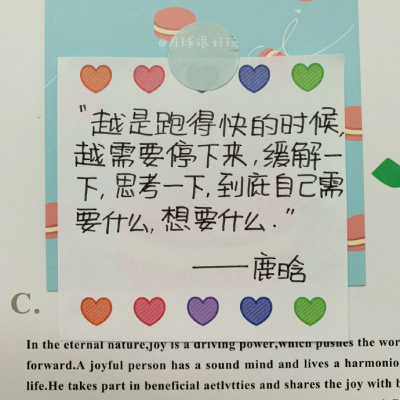 @月球很好玩
"越是跑得快的时候,
越需要停下来,缓解一
下,思考一下,到底自己需
要什么,想要什么."
——鹿晗
C.
In the eternal nature,joy is a driving power,which pushes the wor
forward.A joyful person has a sound mind and lives a harmonio
life.He takes part in beneficial aetlvtties and shares the joy with b